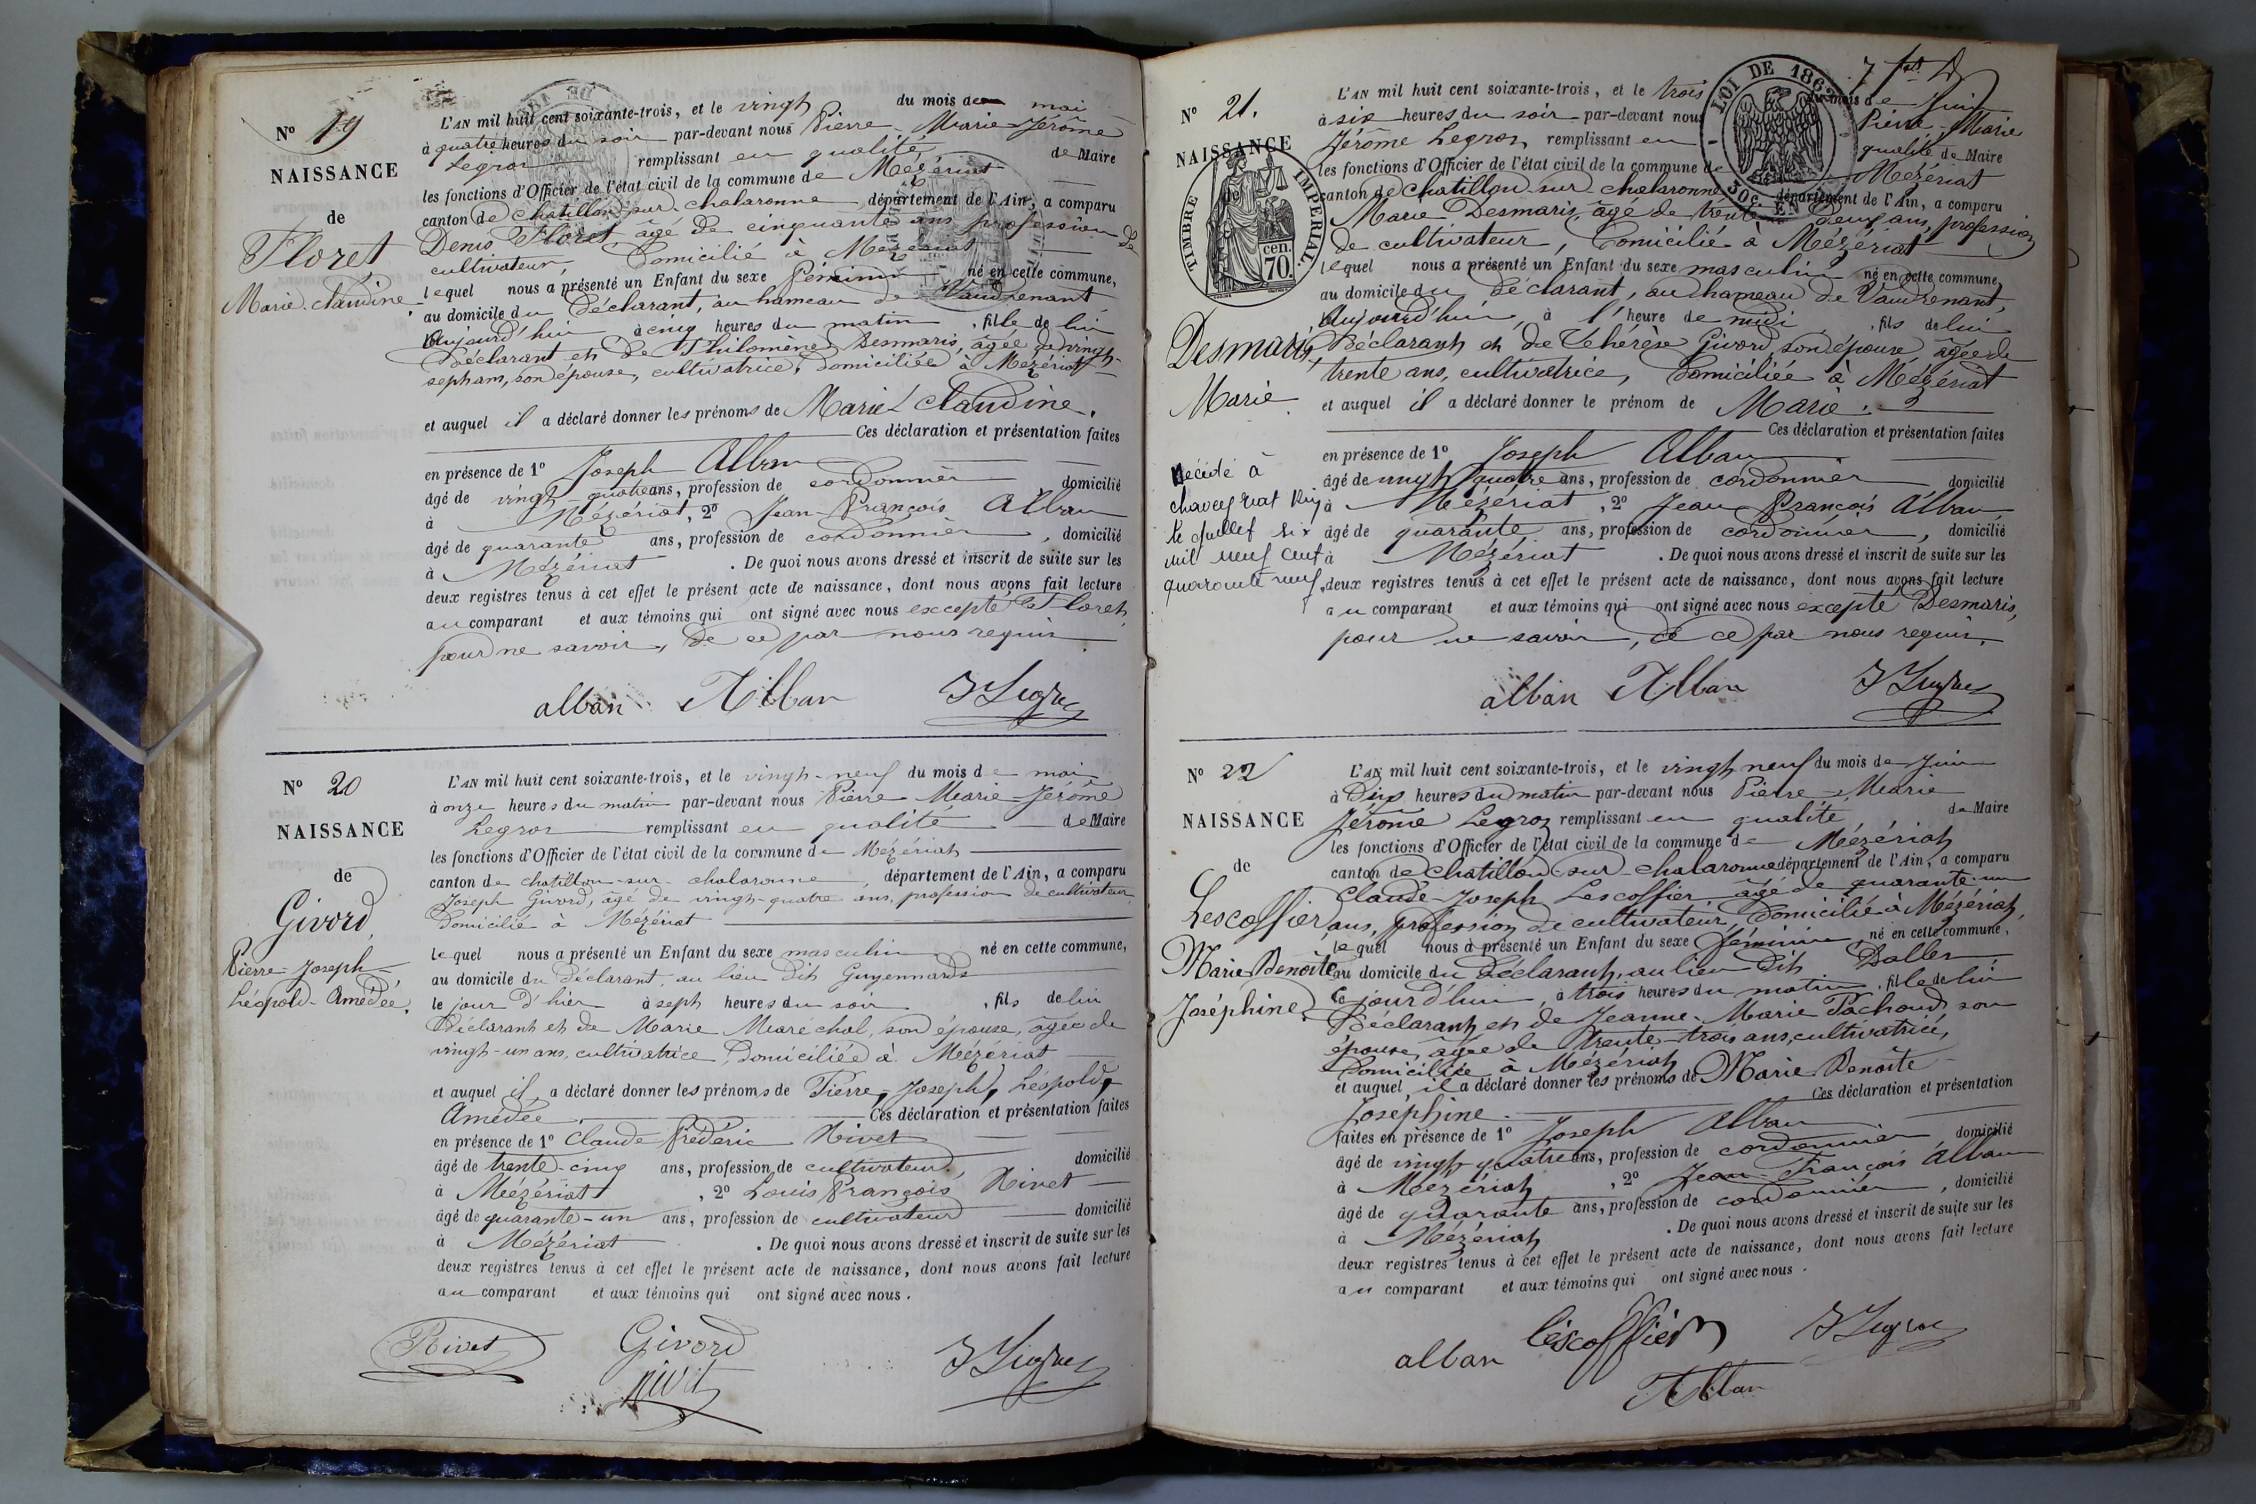 N° 19
NAISSANCE
de
Floret
Marie-claudine
L'AN mil huit cent soixante-trois, et le vingt du mois de mai
à quatre heures du soir par-devant nous Pierre-Marie-Jérôme
Legros remplissant en qualité de Maire
les fonctions d'Officier de l'état civil de la commune de Mézériat
canton de chatillon sur chalaronne, département de l'Ain, a comparu
Denis Floret, âgé de cinquante ans profession de
cultivateur, Domicilié à Mézériat
lequel nous a présenté un Enfant du sexe féminin né en cette commune,
au domicile du Déclarant, au hameau de Vaudrenant
Aujourd'hui à cinq heures du matin, fille de lui
Déclarant et de Philomène Desmaris, âgée de vingt-
sept ans, son épouse, cultivatrice, domiciliée à Mézériat
et auquel il a déclaré donner les prénoms de Marie claudine.
Ces déclaration et présentation faites
en présence de 1° Joseph Alban
âgé de vingt-quatre ans, profession de cordonnier domicilié
à Mézériat, 2° Jean-François Alban
âgé de quarante ans, profession de cordonnier, domicilié
à Mézériat. De quoi nous avons dressé et inscrit de suite sur les
deux registres tenus à cet effet le présent acte de naissance, dont nous avons fait lecture
au comparant et aux témoins qui ont signé avec nous excepté le Floret,
pour ne savoir, de ce par nous requis
alban Alban J Legros
N° 20
NAISSANCE
de
Givord
Pierre-Joseph-
Léopold-Amédée.
L'AN mil huit cent soixante-trois, et le vingt-neuf du mois de mai
à onze heures du matin par-devant nous Pierre-Marie-Jérôme
Legros remplissant en qualité de Maire
les fonctions d'Officier de l'état civil de la commune de Mézériat
canton de chatillon-sur-chalaronne, département de l'Ain, a comparu
Joseph Givord, âgé de vingt-quatre ans, profession de cultivateur,
Domicilié à Mézériat
lequel nous a présenté un Enfant du sexe masculin né en cette commune,
au domicile du Déclarant, au lieu dit Guyennards
le jour d'hier à sept heures du soir, fils de lui
Déclarant et de Marie Maréchal, son épouse, âgée de
vingt-un ans, cultivatrice, Domiciliée à Mézériat
et auquel il a déclaré donner les prénoms de Pierre, Joseph, Léopold,
Amédée. Ces déclaration et présentation faites
en présence de 1° Claude Frédéric Rivet
âgé de trente-cinq ans, profession de cultivateur, domicilié
à Mézériat, 2° Louis François Rivet
âgé de quarante-un ans, profession de cultivateur domicilié
à Mézériat. De quoi nous avons dressé et inscrit de suite sur les
deux registres tenus à cet effet le présent acte de naissance, dont nous avons fait lecture
au comparant et aux témoins qui ont signé avec nous.
Rivet Givord J Legros
rivet
7
LOI DE 1862
30c. EN
TIMBRE IMPERIAL.
cen.
70.
N° 21.
NAISSANCE
de
Desmaris,
Marie
Décédé à
chaveyriat Ain
le juillet six
mil neuf cent
quarante neuf
L'AN mil huit cent soixante-trois, et le trois du mois de Juin
à six heures du soir par-devant nous Pierre-Marie
Jérôme Legros, remplissant en qualité de Maire
les fonctions d'Officier de l'état civil de la commune de Mézériat
canton de chatillon sur chalaronne département de l'Ain, a comparu
Marie Desmaris, âgé de trente deux ans, profession
de cultivateur, Domicilié à Mézériat
lequel nous a présenté un Enfant du sexe masculin né en cette commune,
au domicile du Déclarant, au hameau de Vaudrenant,
Aujourd'hui, à l'heure de midi, fils de lui
Déclarant et de Thérèse Givord, son épouse, âgée de
trente ans, cultivatrice, Domiciliée à Mézériat
et auquel il a déclaré donner le prénom de Marie.
Ces déclaration et présentation faites
en présence de 1° Joseph Alban
âgé de vingt quatre ans, profession de cordonnier domicilié
à Mézériat, 2° Jean François Alban,
âgé de quarante ans, profession de cordonnier, domicilié
à Mézériat. De quoi nous avons dressé et inscrit de suite sur les
deux registres tenus à cet effet le présent acte de naissance, dont nous avons fait lecture
au comparant et aux témoins qui ont signé avec nous excepté Desmaris,
pour ne savoir, de ce par nous requis.
alban Alban J Legros
N° 22
NAISSANCE
de
Lescoffier
Marie Benoîte
Joséphine.
L'AN mil huit cent soixante-trois, et le vingt neuf du mois de Juin
à Dix heures du matin par-devant nous Pierre-Marie
Jérôme Legros remplissant en qualité de Maire
les fonctions d'Officier de l'état civil de la commune de Mézériat
canton de chatillon-sur-chalaronne département de l'Ain, a comparu
Claude-Joseph Lescoffier âgé de quarante-un
ans, profession de cultivateur, Domicilié à Mézériat,
lequel nous a présenté un Enfant du sexe féminin, né en cette commune,
au domicile du Déclarant, au lieu dit Dallen
Ce jourd'hui, à trois heures du matin, fille de lui
Déclarant et de Jeanne-Marie Pachoud, son
épouse, âgée de trente-trois ans, cultivatrice,
Domiciliée à Mézériat
et auquel il a déclaré donner les prénoms de Marie Benoîte
Joséphine. Ces déclaration et présentation
faites en présence de 1° Joseph Alban
âgé de vingt quatre ans, profession de cordonnier domicilié
à Mézériat, 2° Jean-François Alban
âgé de quarante ans, profession de cordonnier, domicilié
à Mézériat. De quoi nous avons dressé et inscrit de suite sur les
deux registres tenus à cet effet le présent acte de naissance, dont nous avons fait lecture
au comparant et aux témoins qui ont signé avec nous.
alban Lescoffier J Legros
Alban